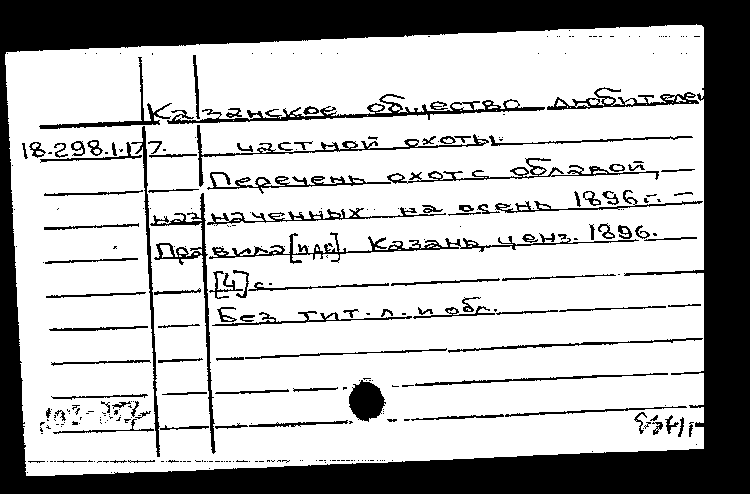 Казанское общество любителей
18.298.1.177. частной охоты.
Перечень охот с облавой,
назначенных на осень 1896 г. –
Правила [и др]. Казань, ценз. 1896.
[4] с.
Без тит. л. и обл.